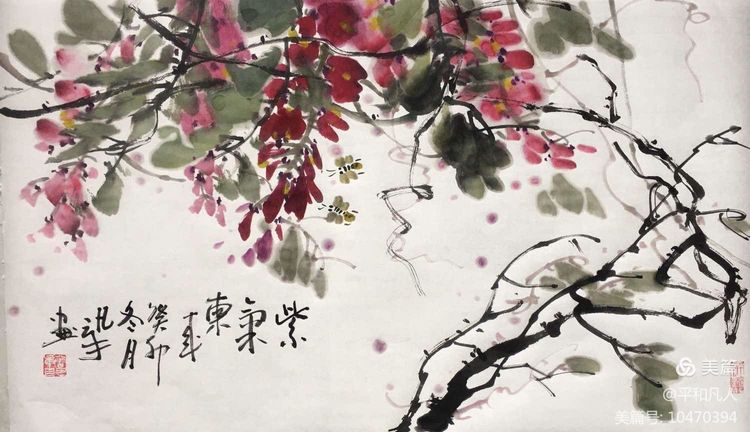 紫氣東来
癸卯
冬月
画
美篇
@平和凡人
美篇号: 10470394